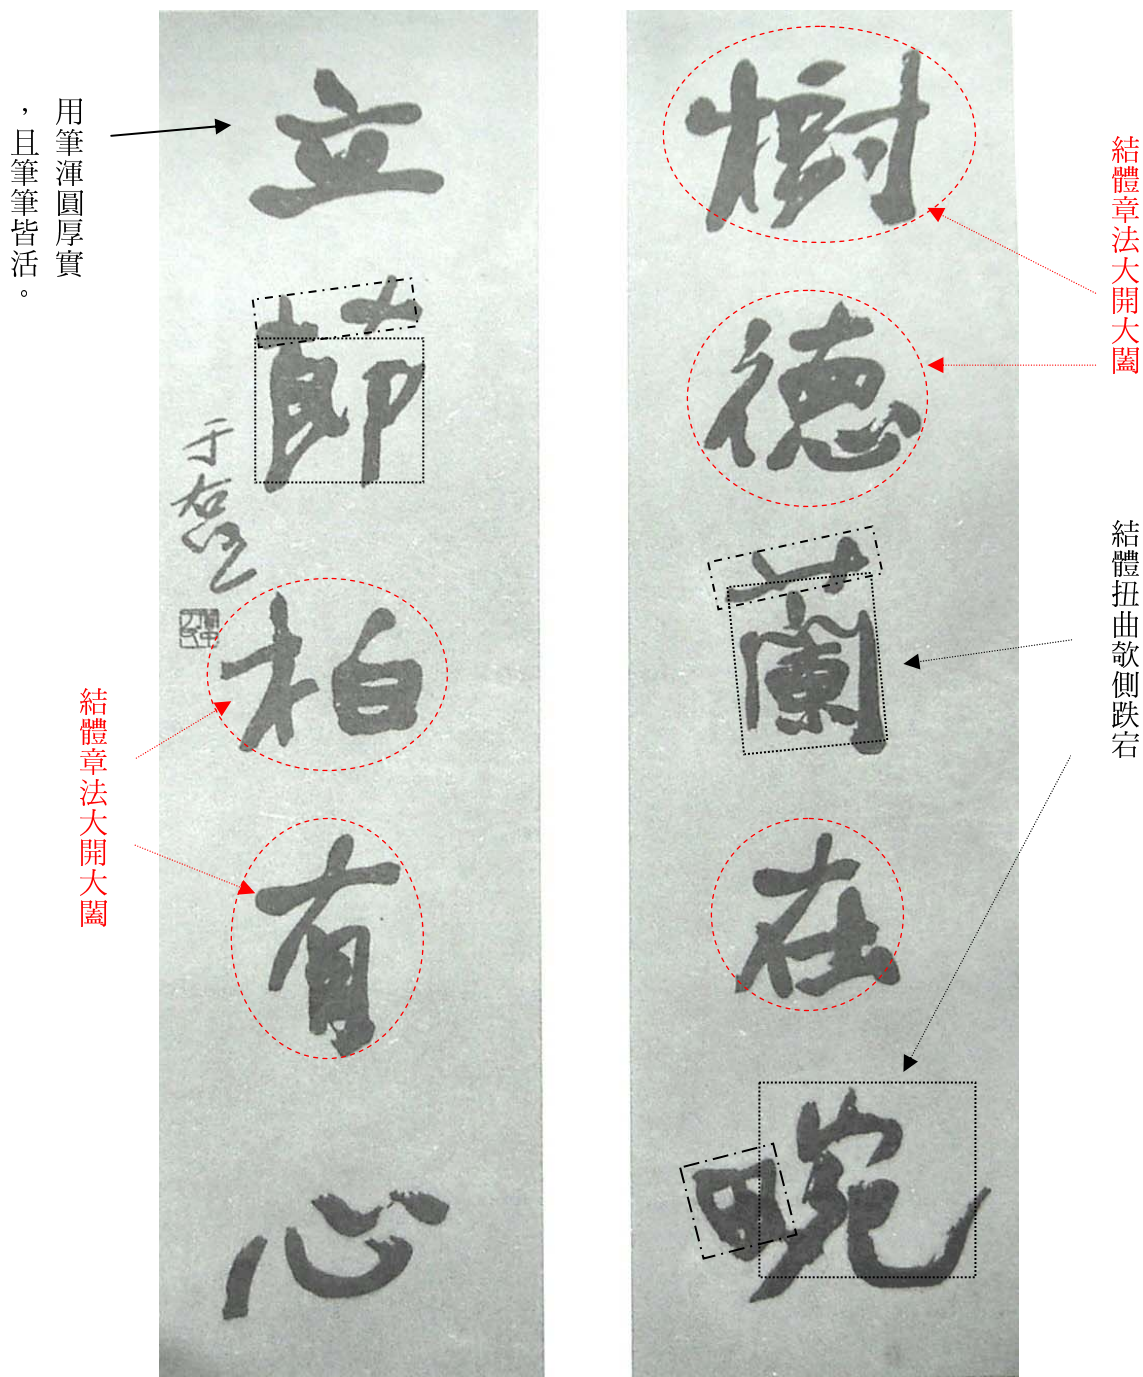 結體章法大開大闔
結體扭曲欹側跌宕
樹德蘭在畹
立節柏有心
于右任
用筆渾圓厚實
，且筆筆皆活。
結體章法大開大闔